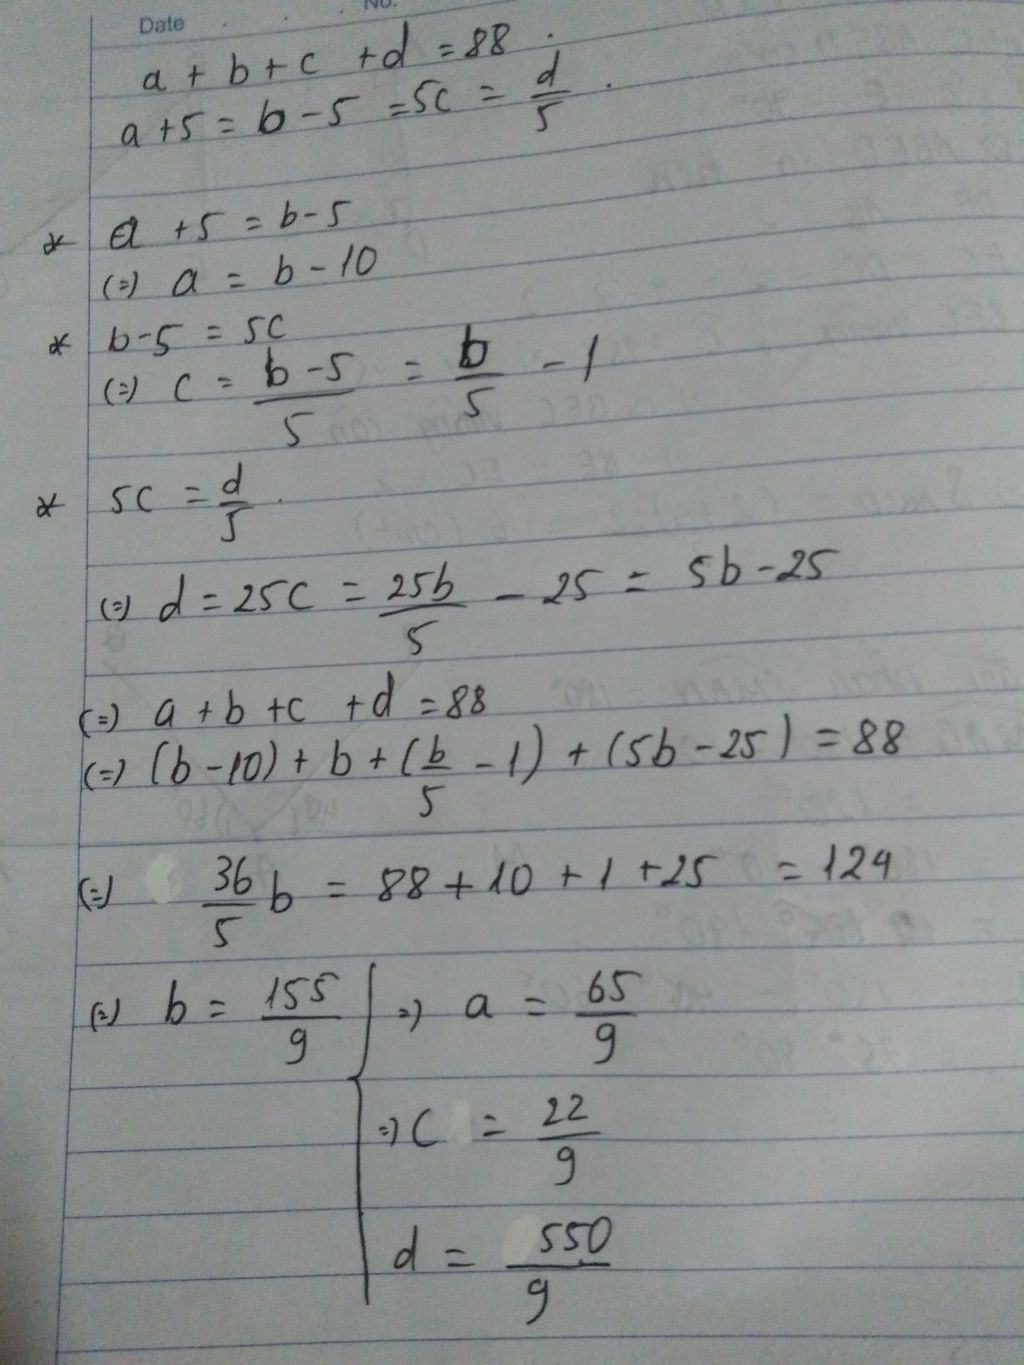 No.
Date
a + b + c + d = 88.
a + 5 = b - 5 = 5c = d/5.
* a + 5 = b - 5
(=) a = b - 10
* b - 5 = 5c
(=) c = b - 5/5 = b/5 - 1
* 5c = d/5.
(=) d = 25c = 25b/5 - 25 = 5b - 25
(=) a + b + c + d = 88
(=) (b - 10) + b + (b/5 - 1) + (5b - 25) = 88
(=) 36/5 b = 88 + 10 + 1 + 25 = 124
(=) b = 155/9 =) a = 65/9
=) c = 22/9
d = 550/9